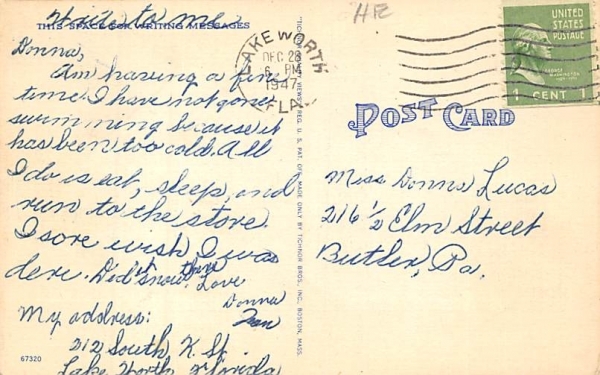 Write to me
THIS SPACE FOR WRITING MESSAGES
Donna,
Am having a fine
time. I have not gone
swimming because it
has been too cold. All
I do is eat, sleep, and
run to the store.
I sore wish I was
dere. Did it snow there
Love
Donna
My address:
212 South K. St.
Lake Worth, Florida
67320
MADE ONLY BY TICHNOR BROS., INC., BOSTON, MASS.
HE
LAKE WORTH
DEC 28
6 PM
1947
FLA.
UNITED
STATES
POSTAGE
GEORGE
WASHINGTON
1 CENT 1
POST CARD
Miss Donna Lucas
216 1/2 Elm Street
Butler, Pa.